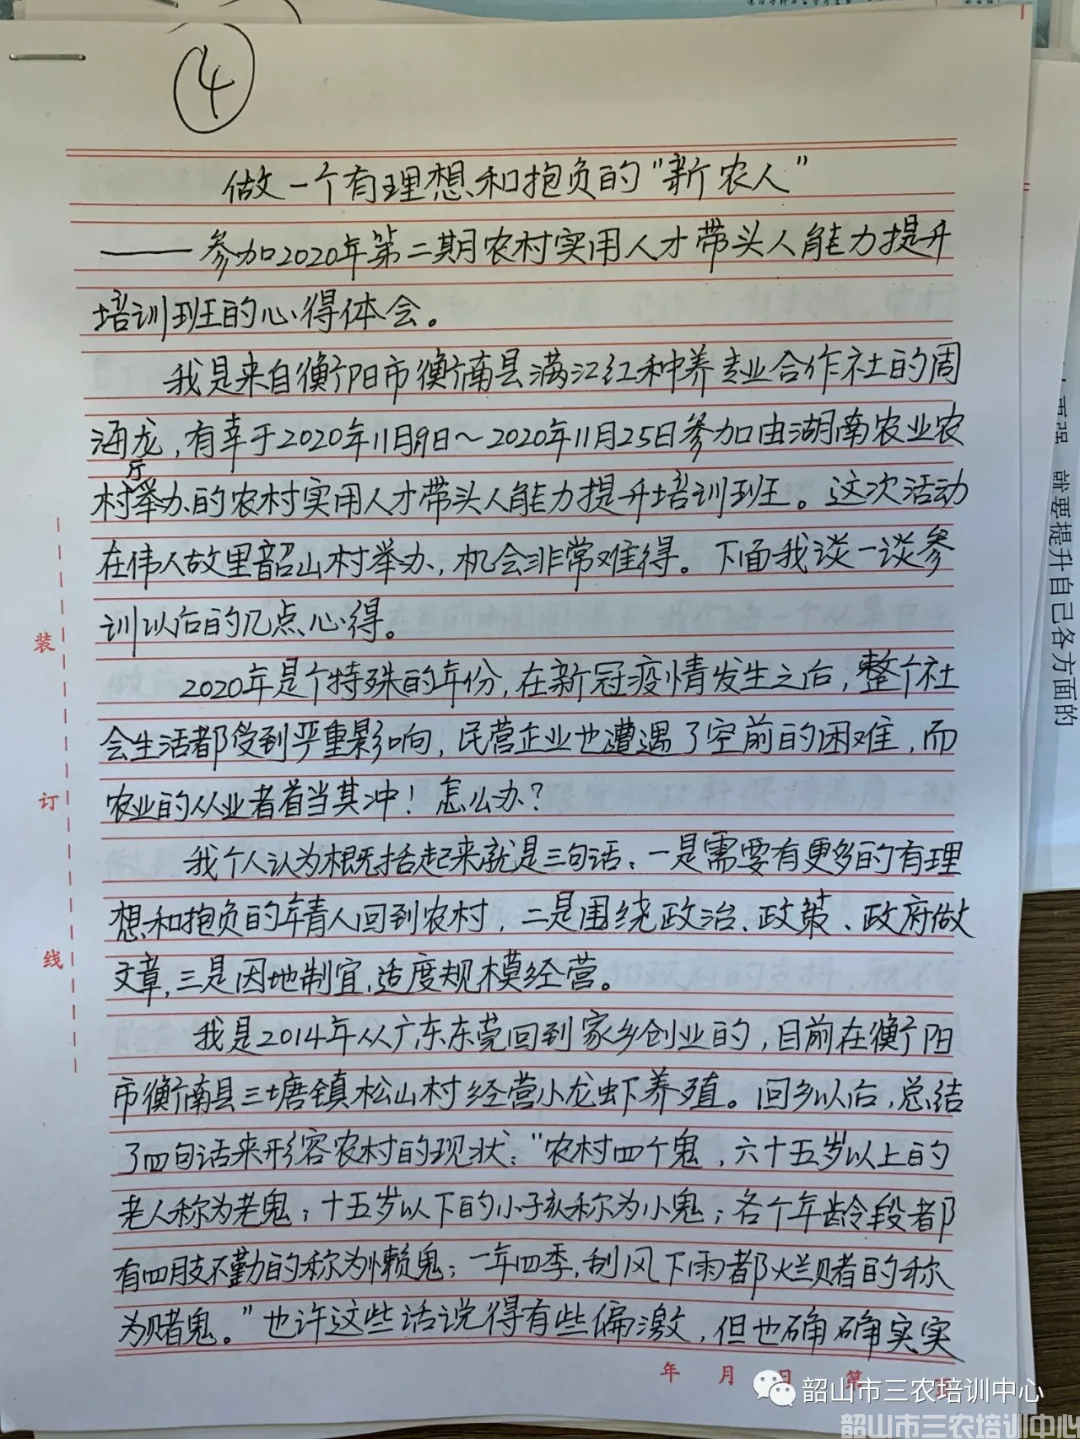 ④
做一个有理想和抱负的“新农人”
——参加2020年第二期农村实用人才带头人能力提升
培训班的心得体会。
我是来自衡阳市衡南县满江红种养专业合作社的周
海龙,有幸于2020年11月9日～2020年11月25日参加由湖南农业农
村厅举办的农村实用人才带头人能力提升培训班。这次活动
在伟人故里韶山村举办,机会非常难得。下面我谈一谈参
训以后的几点心得。
2020年是个特殊的年份,在新冠疫情发生之后,整个社
会生活都受到严重影响,民营企业也遭遇了空前的困难,而
农业的从业者首当其冲!怎么办?
我个人认为概括起来就是三句话:一是需要有更多的有理
想和抱负的年青人回到农村,二是围绕政治、政策、政府做
文章,三是因地制宜,适度规模经营。
我是2014年从广东东莞回到家乡创业的,目前在衡阳
市衡南县三塘镇松山村经营小龙虾养殖。回乡以后,总结
了四句话来形容农村的现状:“农村四个鬼,六十五岁以上的
老人称为老鬼;十五岁以下的小孩称为小鬼;各个年龄段都
有四肢不勤的称为懒鬼;一年四季,刮风下雨都烂赌的称
为赌鬼。”也许这些话说得有些偏激,但也确确实实
装
订
线
年 月 日 第
就要提升自己各方面的
韶山市三农培训中心
韶山市三农培训中心